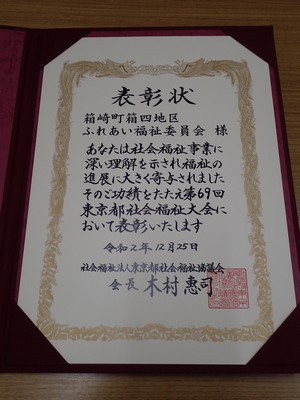 表彰状
箱崎町箱四地区
ふれあい福祉委員会 様
あなたは社会福祉事業に
深い理解を示され福祉の
進展に大きく寄与されました
そのご功績をたたえ第69回
東京都社会福祉大会に
おいて表彰いたします
令和2年12月25日
社会福祉法人東京都社会福祉協議会
会長 木村惠司